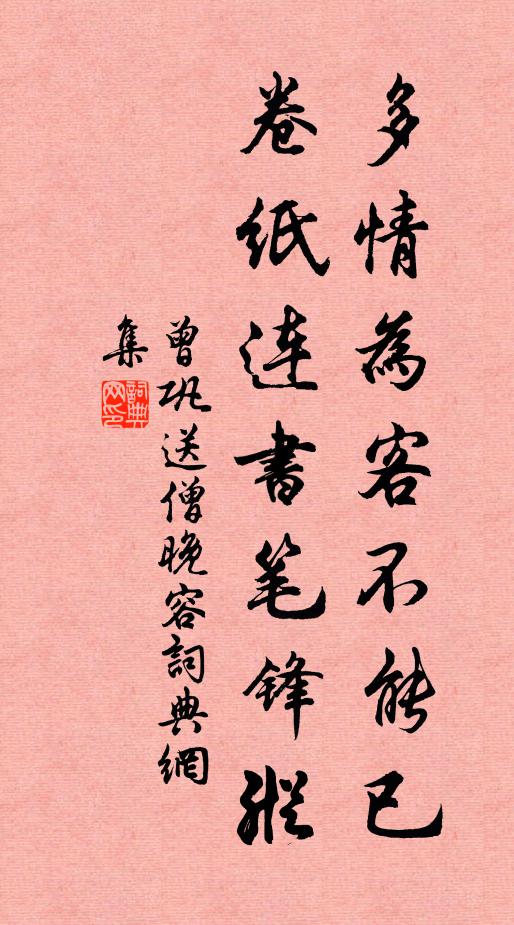 多情為客不能已
卷紙連書笔鋒縱
曾巩送僧晚容詞典網
集
詞典網印